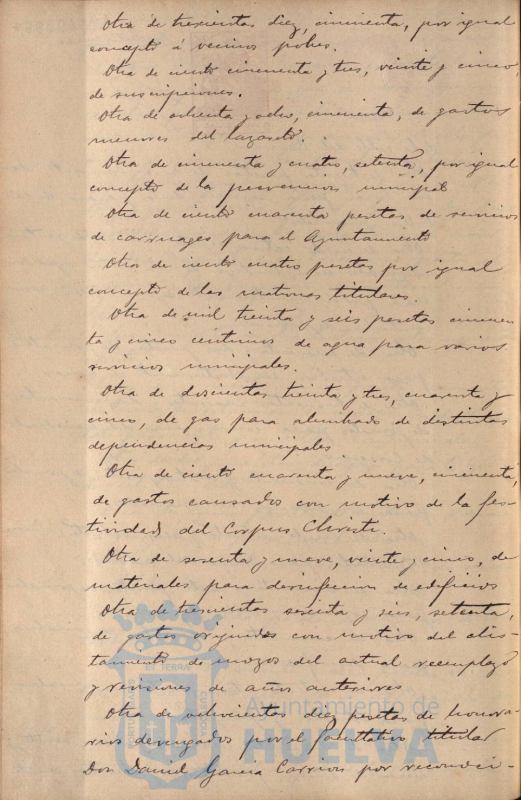 Otra de trescientas diez, cincuenta, por igual
concepto á vecinos pobres.
Otra de ciento cincuenta y tres, veinte y cinco,
de suscripciones.
Otra de ochenta y ocho, cincuenta, de gastos
menores del lazareto.
Otra de cincuenta y cuatro, setenta, por igual
concepto de la prevencion municipal
Otra de ciento cuarenta pesetas de servicios
de carruages para el Ayuntamiento
Otra de ciento cuatro pesetas por igual
concepto de las matronas titulares.
Otra de mil treinta y seis pesetas cincuen
ta y cinco centimos de agua para varios
servicios municipales.
Otra de doscientas treinta y tres, cuarenta y
cinco, de gas para alumbrado de distintas
dependencias municipales
Otra de ciento cuarenta y nueve, cincuenta,
de gastos causados con motivo de la fes-
tividad del Corpus Christi.
Otra de sesenta y nueve, veinte y cinco, de
materiales para desinfeccion de edificios
Otra de trescientas sesenta y seis, setenta,
de gastos originados con motivo del alis-
tamiento de mozos del actual reemplazo
y revisiones de años anteriores
Otra de ochocientas diez pesetas de honora-
rios devengados por el facultativo titular
Don Daniel Garcia Carrion por reconoci-
Ayuntamiento de
HUELVA